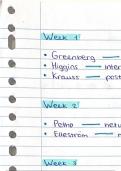 Week 1
• Greenberg —
• Higgins — inter
• Krauss — post
Week 2
• Petho —
• Elleström —
Week 3